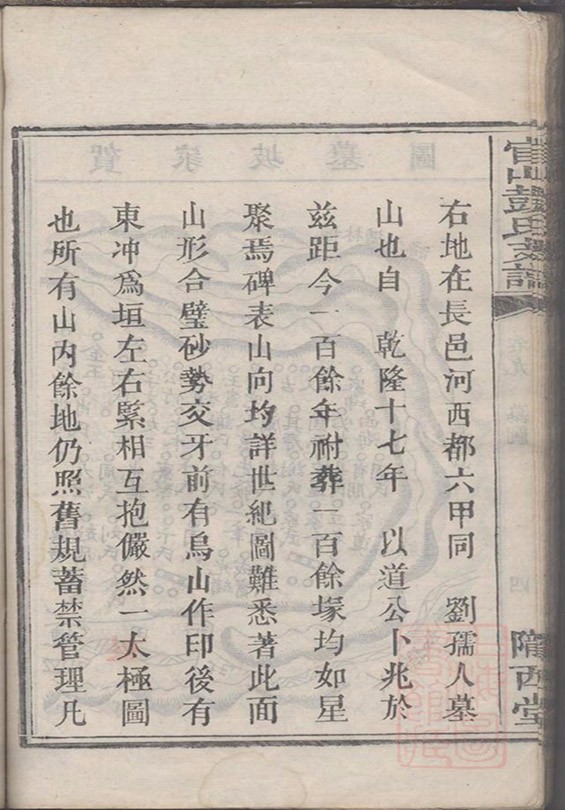 右地在長邑河西都六甲同　劉孺人墓
山也自　乾隆十七年　以道公卜兆於
茲距今一百餘年祔葬一百餘塚均如星
聚焉碑表山向均詳世紀圖難悉著此面
山形合璧砂勢交牙前有烏山作印後有
東冲爲垣左右緊相互抱儼然一太極圖
也所有山內餘地仍照舊規蓄禁管理凡
官山彭氏支譜
隴西堂